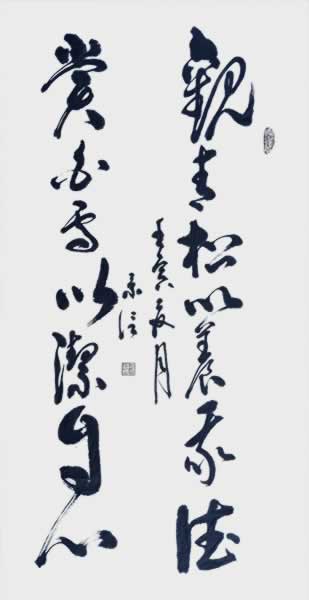 觀青松以養我德
賞白雪以潔身心
壬寅夏月